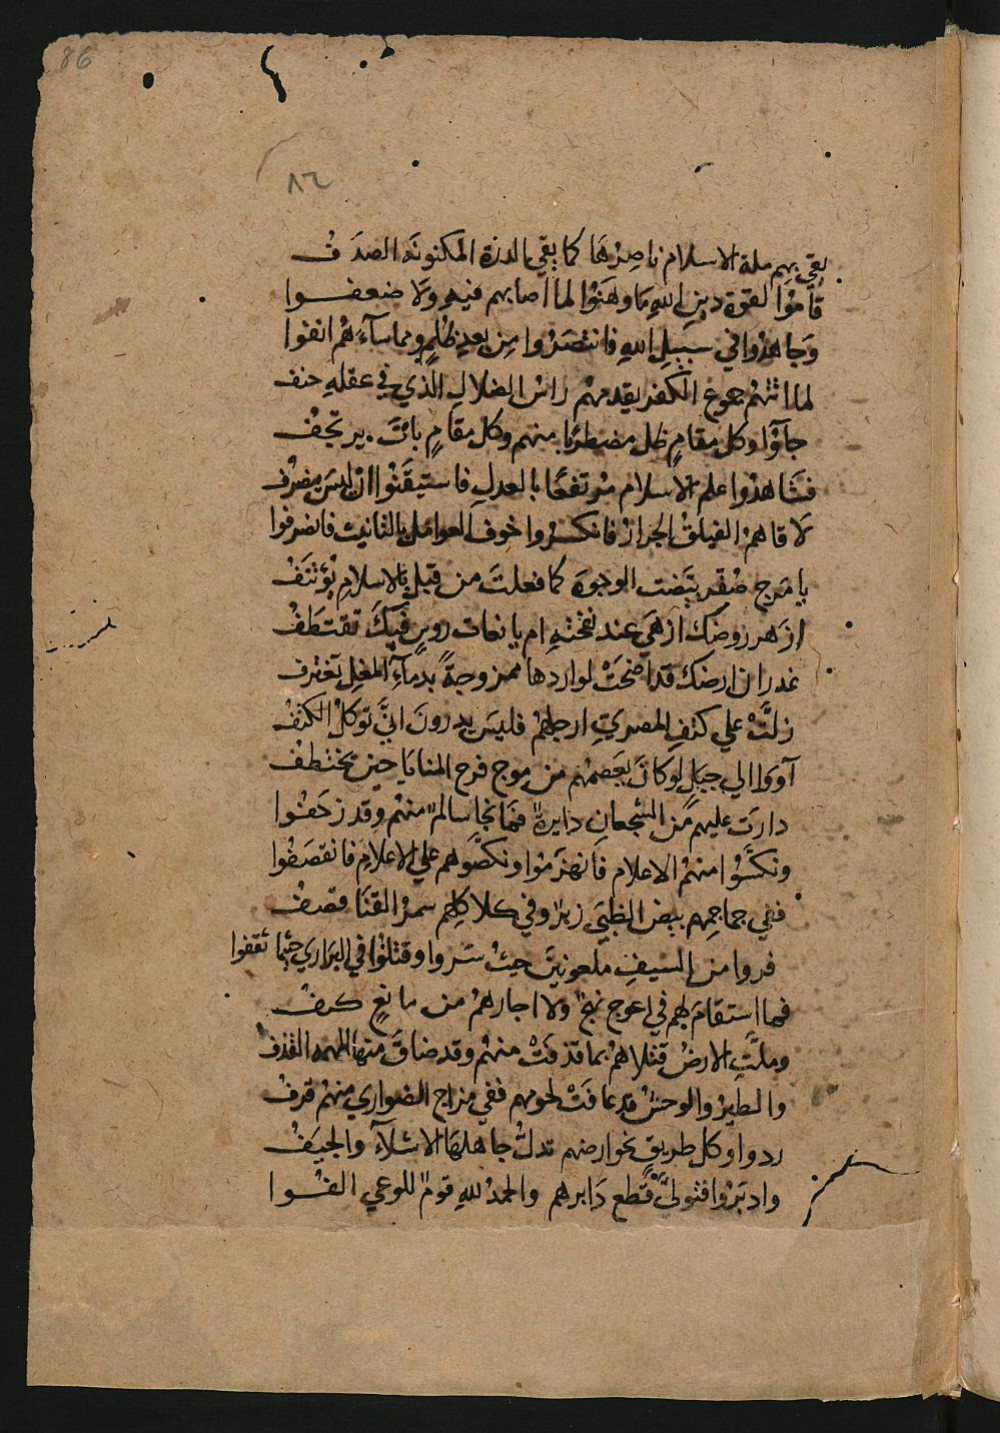 86
٨٦
بقي بهم ملة الاسلام ناصرها كما يقي الدرة المكنونه الصدف
قاموا لقوة دين الله ما وهنوا لما اصابهم فيه ولا ضعفوا
وجاهدوا في سبيل الله فانتصروا من بعد ظلم ومما ساءهم انفوا
لما اتتهم جموع الكفر يقدمهم راس الضلال الذي في عقله حنف
جاؤا وكل مقام ظل مضطربا منهم وكل مقام بات يرتجف
فشاهدوا علم الاسلام مرتفعا بالعدل فاستيقنوا ان ليس ينصرف
لاقاهم الفيلق الجرار فانكسروا خوف العوامل بالتانيث فانصرفوا
يا مرج صفر بيضت الوجوه كما فعلت من قبل بالاسلام يؤتنف
ازهر روضك ازهى عند نفحته ام يانعات روس فيك تقتطف
غدران ارضك قد اضحت لواردها ممزوجة بدماء المغل تغترف
زلت علي كتف المصري ارجلهم فليس يدرون اني توكل الكتف
آووا الي جبل لو كان يعصمهم من موج فرج المنايا حين يختطف
دارت عليهم من الشجعان دايرة فما نجا سالم منهم وقد زحفوا
ونكسوا منهم الاعلام فانهزموا ونكصوهم علي الاعلام فانقصفوا
ففي جماجمهم بيض الظبي زبر وفي كلاكلهم سمر القنا قصف
فروا من السيف ملعونين حيث سروا وقتلوا في البراري حيثما ثقفوا
فما استقام لهم في اعوج نهج ولا اجارهم من مانع كنف
وملت الارض قتلاهم بما قذفت منهم وقد ضاق منها المهمه القذف
والطير والوحش قد عافت لحومهم ففي مزاج الضواري منهم قرف
ردوا وكل طريق نحو ارضهم تدل جاهلها الاشلاء والجيف
وادبروا فتولي قطع دابرهم والحمد لله قوم للوغي الفوا